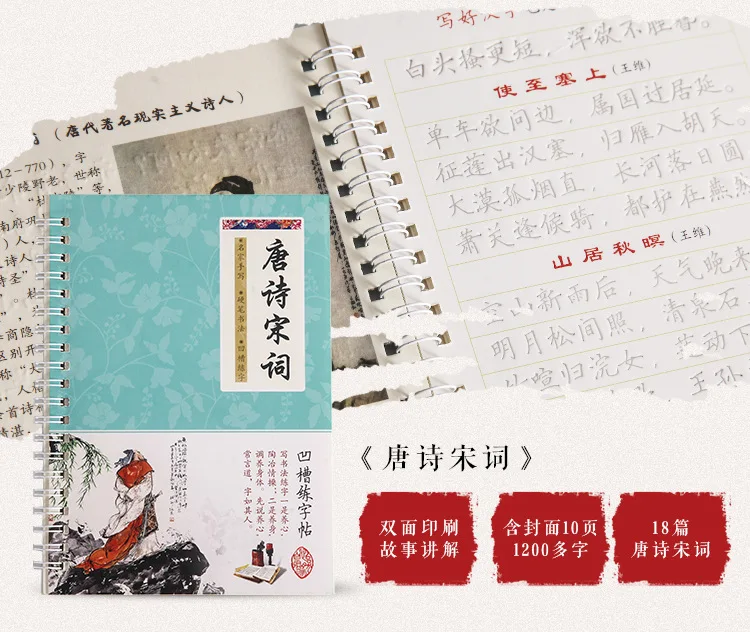 白头搔更短，浑欲不胜簪。
使至塞上(王维)
单车欲问边，属国过居延。
征蓬出汉塞，归雁入胡天。
大漠孤烟直，长河落日圆
萧关逢候骑，都护在燕然
山居秋暝(王维)
空山新雨后，天气晚来
明月松间照，清泉石
竹喧归浣女，莲动下
王孙
(唐代著名现实主义诗人)
12-770)，字
少陵野老，世称
人，
诗圣"
商隐
区别开
称"大
唐诗宋词
名家手写
硬笔书法
凹槽练字
凹槽练字帖
写书法练字一是养心
陶冶情操；二是养身，
调养身体。先说养心
常言道，字如其人。
《唐诗宋词》
双面印刷
故事讲解
含封面10页
1200多字
18篇
唐诗宋词